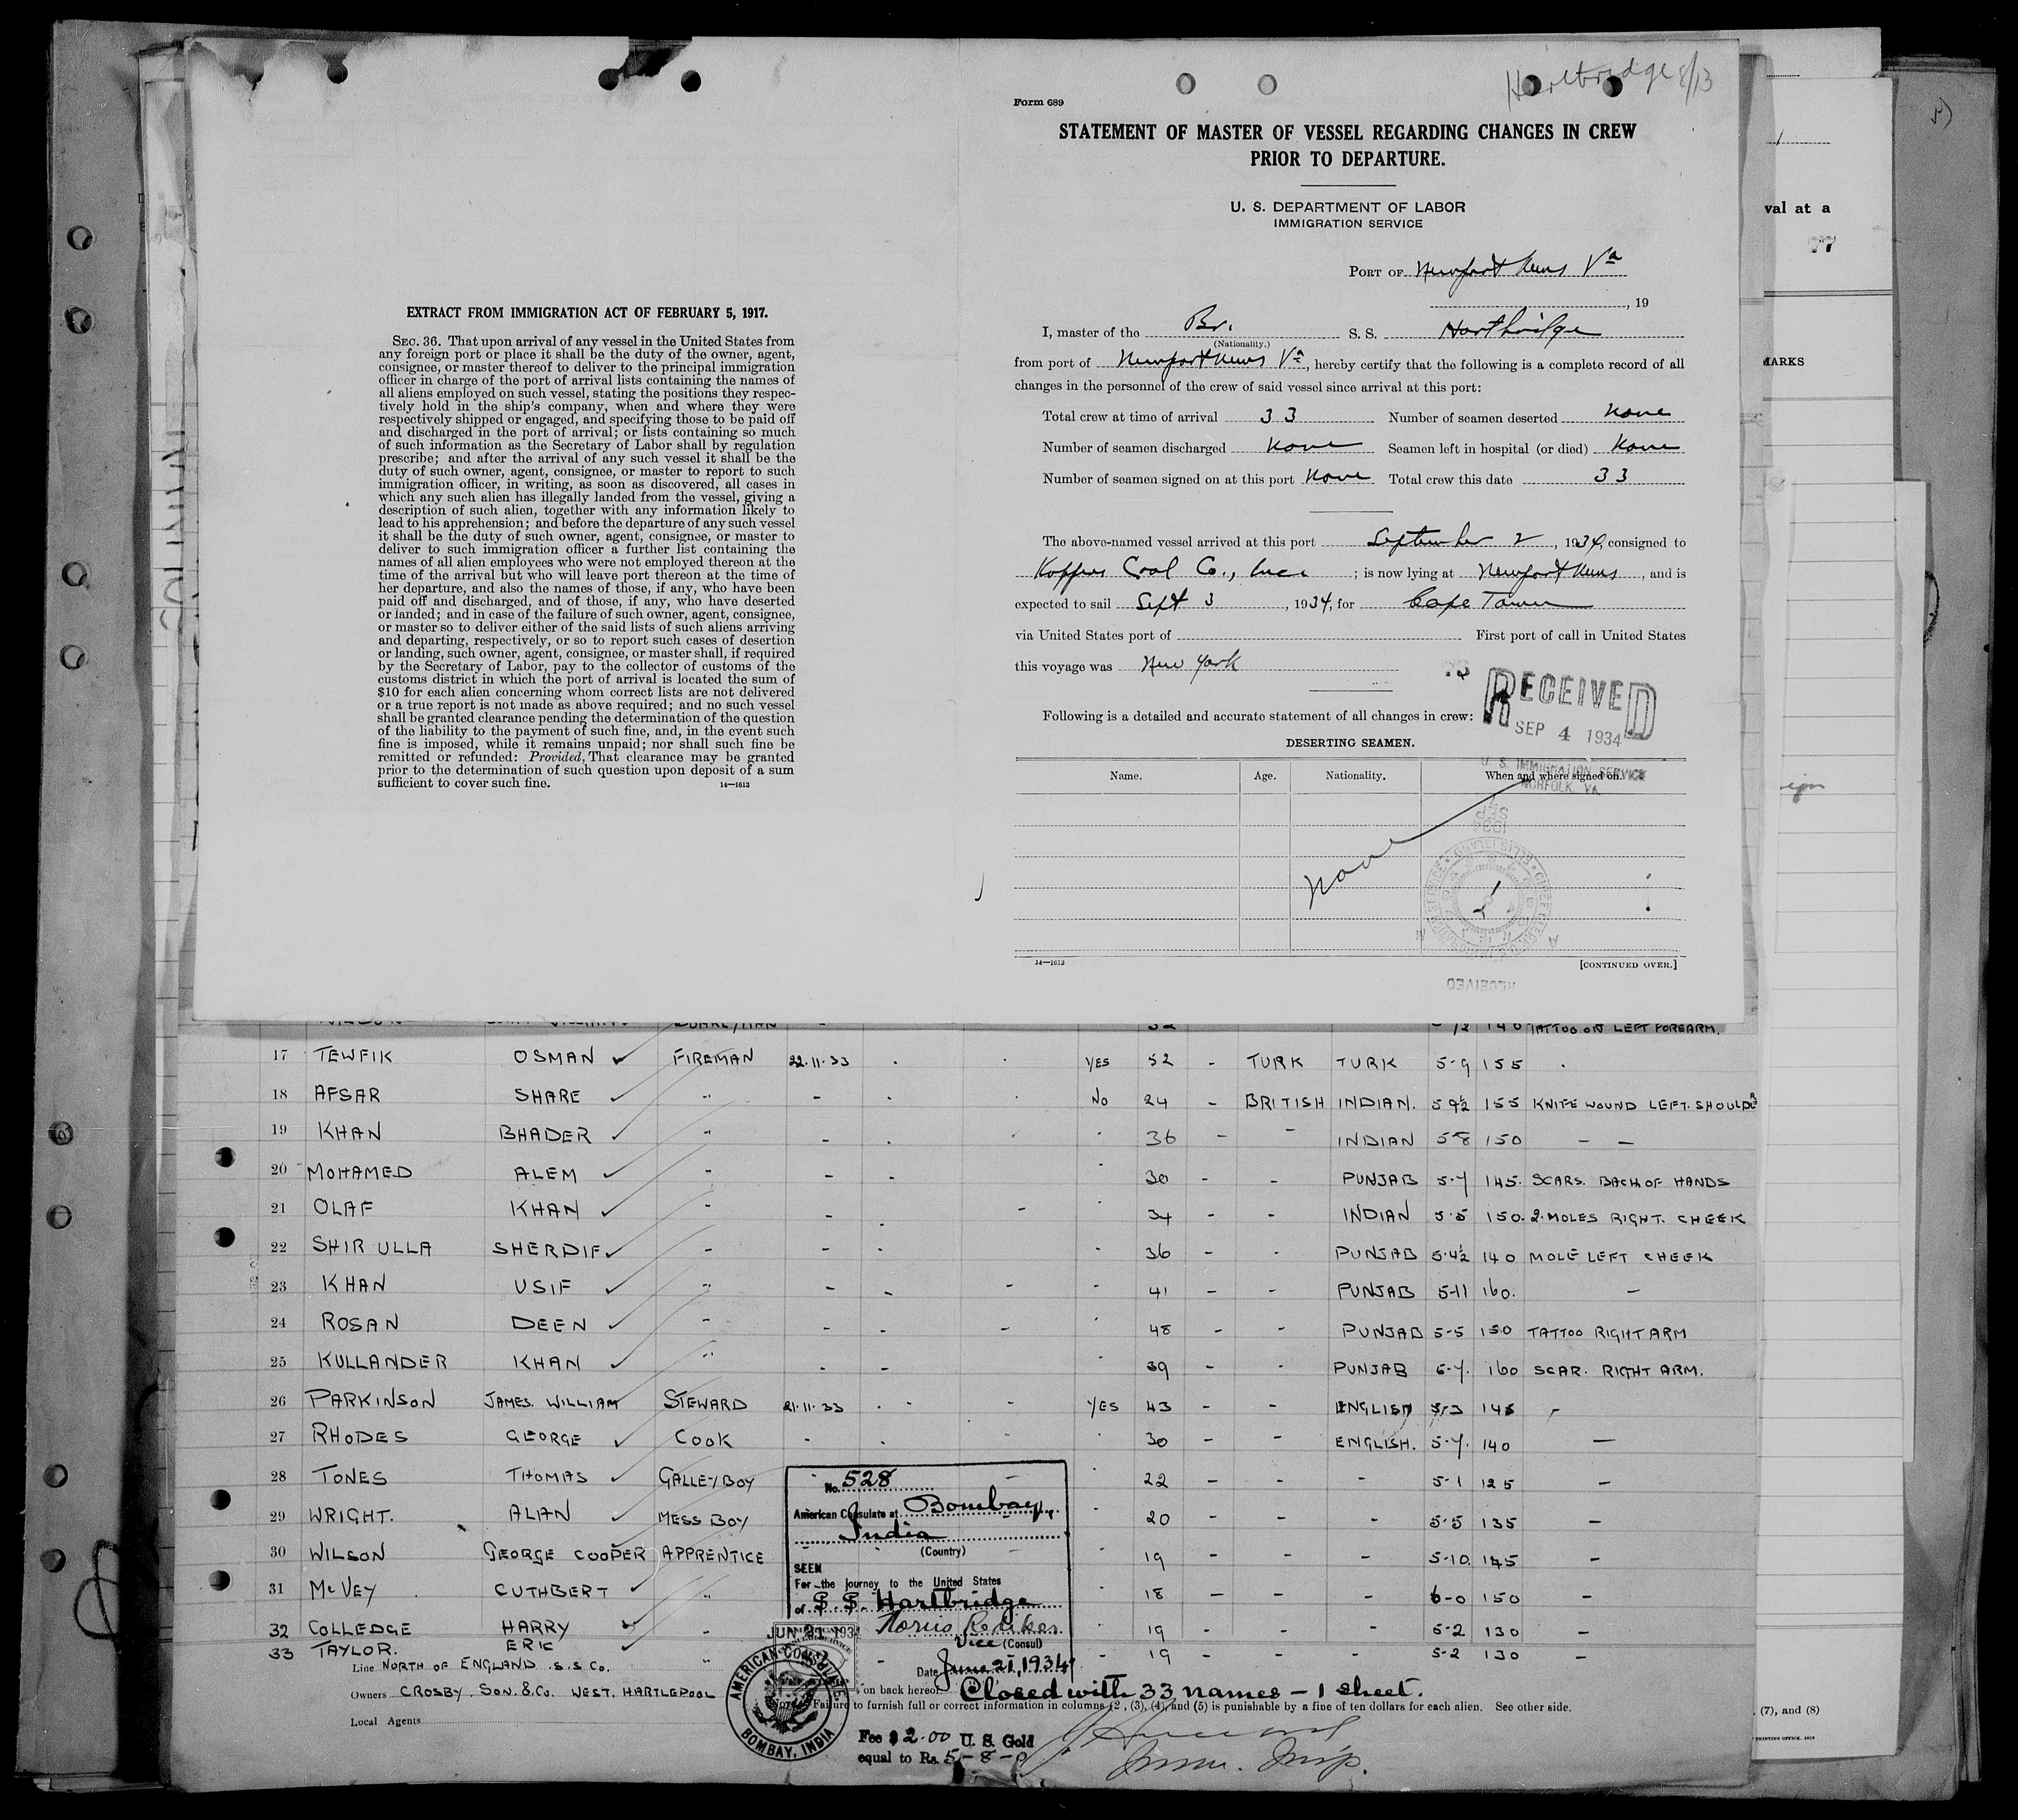 Hartbridge 8/13
Form 689
STATEMENT OF MASTER OF VESSEL REGARDING CHANGES IN CREW
PRIOR TO DEPARTURE.
U. S. DEPARTMENT OF LABOR
IMMIGRATION SERVICE
PORT OF Newport News Va
, 19
I, master of the Br. S. S. Hartbridge
(Nationality.)
from port of Newport News Va, hereby certify that the following is a complete record of all
changes in the personnel of the crew of said vessel since arrival at this port:
Total crew at time of arrival 33 Number of seamen deserted None
Number of seamen discharged None Seamen left in hospital (or died) None
Number of seamen signed on at this port None Total crew this date 33
The above-named vessel arrived at this port September 2, 1934, consigned to
Koppers Coal Co., Inc. ; is now lying at Newport News, and is
expected to sail Sept 3, 1934, for Cape Town
via United States port of First port of call in United States
this voyage was New York
RECEIVED
SEP 4 1934
U. S. IMMIGRATION SERVICE
NORFOLK, VA
Following is a detailed and accurate statement of all changes in crew:
DESERTING SEAMEN.
Name. Age. Nationality. When and where signed on.
None
14—1613 [CONTINUED OVER.]
RECEIVED
EXTRACT FROM IMMIGRATION ACT OF FEBRUARY 5, 1917.
SEC. 36. That upon arrival of any vessel in the United States from
any foreign port or place it shall be the duty of the owner, agent,
consignee, or master thereof to deliver to the principal immigration
officer in charge of the port of arrival lists containing the names of
all aliens employed on such vessel, stating the positions they respec-
tively hold in the ship's company, when and where they were
respectively shipped or engaged, and specifying those to be paid off
and discharged in the port of arrival; or lists containing so much
of such information as the Secretary of Labor shall by regulation
prescribe; and after the arrival of any such vessel it shall be the
duty of such owner, agent, consignee, or master to report to such
immigration officer, in writing, as soon as discovered, all cases in
which any such alien has illegally landed from the vessel, giving a
description of such alien, together with any information likely to
lead to his apprehension; and before the departure of any such vessel
it shall be the duty of such owner, agent, consignee, or master to
deliver to such immigration officer a further list containing the
names of all alien employees who were not employed thereon at the
time of the arrival but who will leave port thereon at the time of
her departure, and also the names of those, if any, who have been
paid off and discharged, and of those, if any, who have deserted
or landed; and in case of the failure of such owner, agent, consignee,
or master so to deliver either of the said lists of such aliens arriving
and departing, respectively, or so to report such cases of desertion
or landing, such owner, agent, consignee, or master shall, if required
by the Secretary of Labor, pay to the collector of customs of the
customs district in which the port of arrival is located the sum of
$10 for each alien concerning whom correct lists are not delivered
or a true report is not made as above required; and no such vessel
shall be granted clearance pending the determination of the question
of the liability to the payment of such fine, and, in the event such
fine is imposed, while it remains unpaid; nor shall such fine be
remitted or refunded: Provided, That clearance may be granted
prior to the determination of such question upon deposit of a sum
sufficient to cover such fine. 14—1613
val at a
MARKS
140 TATTOO ON LEFT FOREARM.
17 TEWFIK OSMAN FIREMAN 22.11.33 YES 52 - TURK TURK 5-9 155
18 AFSAR SHARE " - NO 24 - BRITISH INDIAN. 5 9½ 155 KNIFE WOUND LEFT. SHOULDR
19 KHAN BHADER " - 36 - - INDIAN 5-8 150 - -
20 MOHAMED ALEM " - 30 - - PUNJAB 5-7 145. SCARS. BACK OF HANDS
21 OLAF KHAN " - 34 - - INDIAN 5-5 150. 2. MOLES RIGHT. CHEEK
22 SHIR ULLA SHERDIF " - 36 - - PUNJAB 5-4½ 140 MOLE LEFT CHEEK
23 KHAN USIF " - 41 - - PUNJAB 5-11 160. -
24 ROSAN DEEN " - 48 - - PUNJAB 5-5 150 TATTOO RIGHT ARM
25 KULLANDER KHAN " - 39 - - PUNJAB 6-7. 160 SCAR. RIGHT ARM.
26 PARKINSON JAMES. WILLIAM STEWARD 21.11.33 YES 43 - - ENGLISH 5-3 145 -
27 RHODES GEORGE COOK 30 - - ENGLISH. 5-7. 140 -
28 TONES THOMAS GALLEY BOY 22 - - - 5-1 125 -
29 WRIGHT. ALAN MESS BOY 20 - - - 5-5 135 -
30 WILSON GEORGE COOPER APPRENTICE 19 - - - 5-10. 145 -
31 McVEY CUTHBERT " 18 - - - 6-0 150 -
32 COLLEDGE HARRY " 19 - - - 5-2 130 -
33 TAYLOR. ERIC " 19 - - - 5-2 130 -
No. 528
American Consulate at Bombay,
India
(Country)
SEEN
For the journey to the United States
of S.S. Hartbridge
Vice (Consul)
Date June 21, 1934
JUN 21 1934
AMERICAN CONSULATE
BOMBAY, INDIA
Line NORTH OF ENGLAND S.S Co.
Owners CROSBY. SON. & Co. WEST. HARTLEPOOL
on back hereof
Closed with 33 names – 1 sheet.
Failure to furnish full or correct information in columns (2, (3), (4), and (5) is punishable by a fine of ten dollars for each alien. See other side.
Local Agents
Fee $2.00 U. S. Gold
equal to Rs. 5-8-0
, (7), and (8)
PRINTING OFFICE. 1919